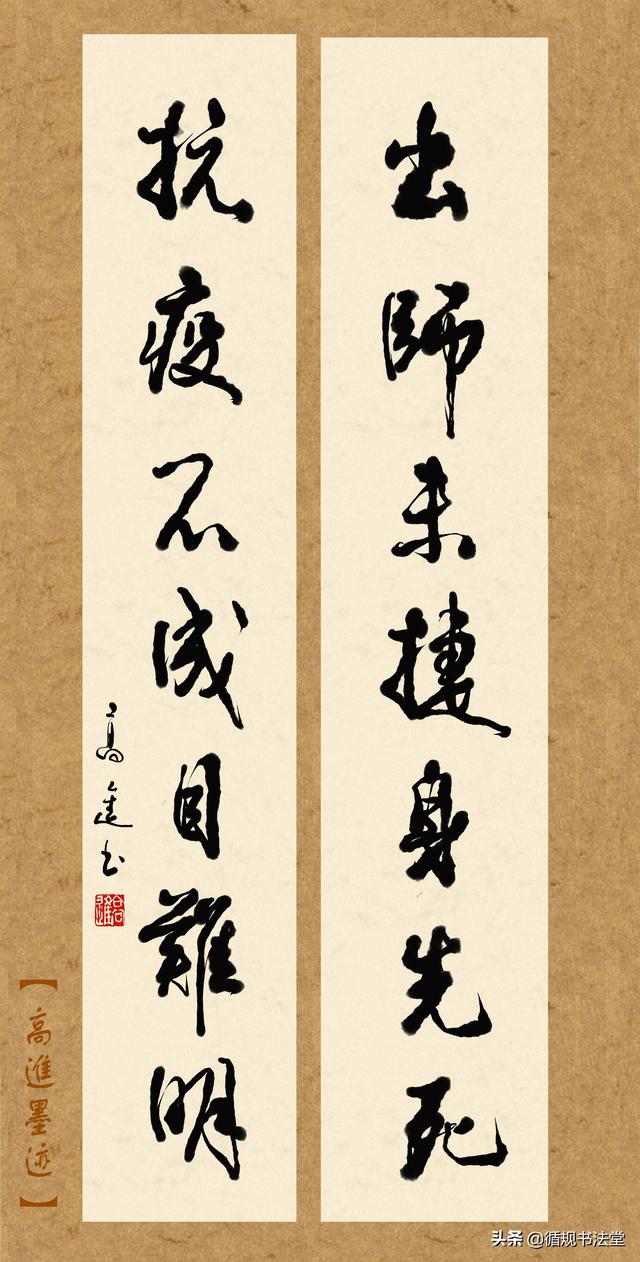 出師未捷身先死
抗疫不成目難明
高進书
高進
【高進墨迹】
头条 @循规书法堂